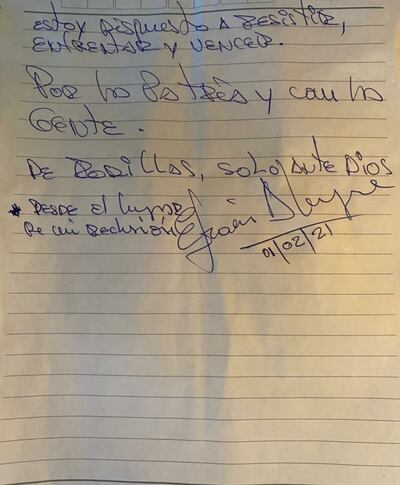 estoy dispuesto a resistir,
enfrentar y vencer.
Por la Patria y con la
Gente.
De rodillas, solo ante Dios
* Desde el lugar
de mi reclusión
01/02/21